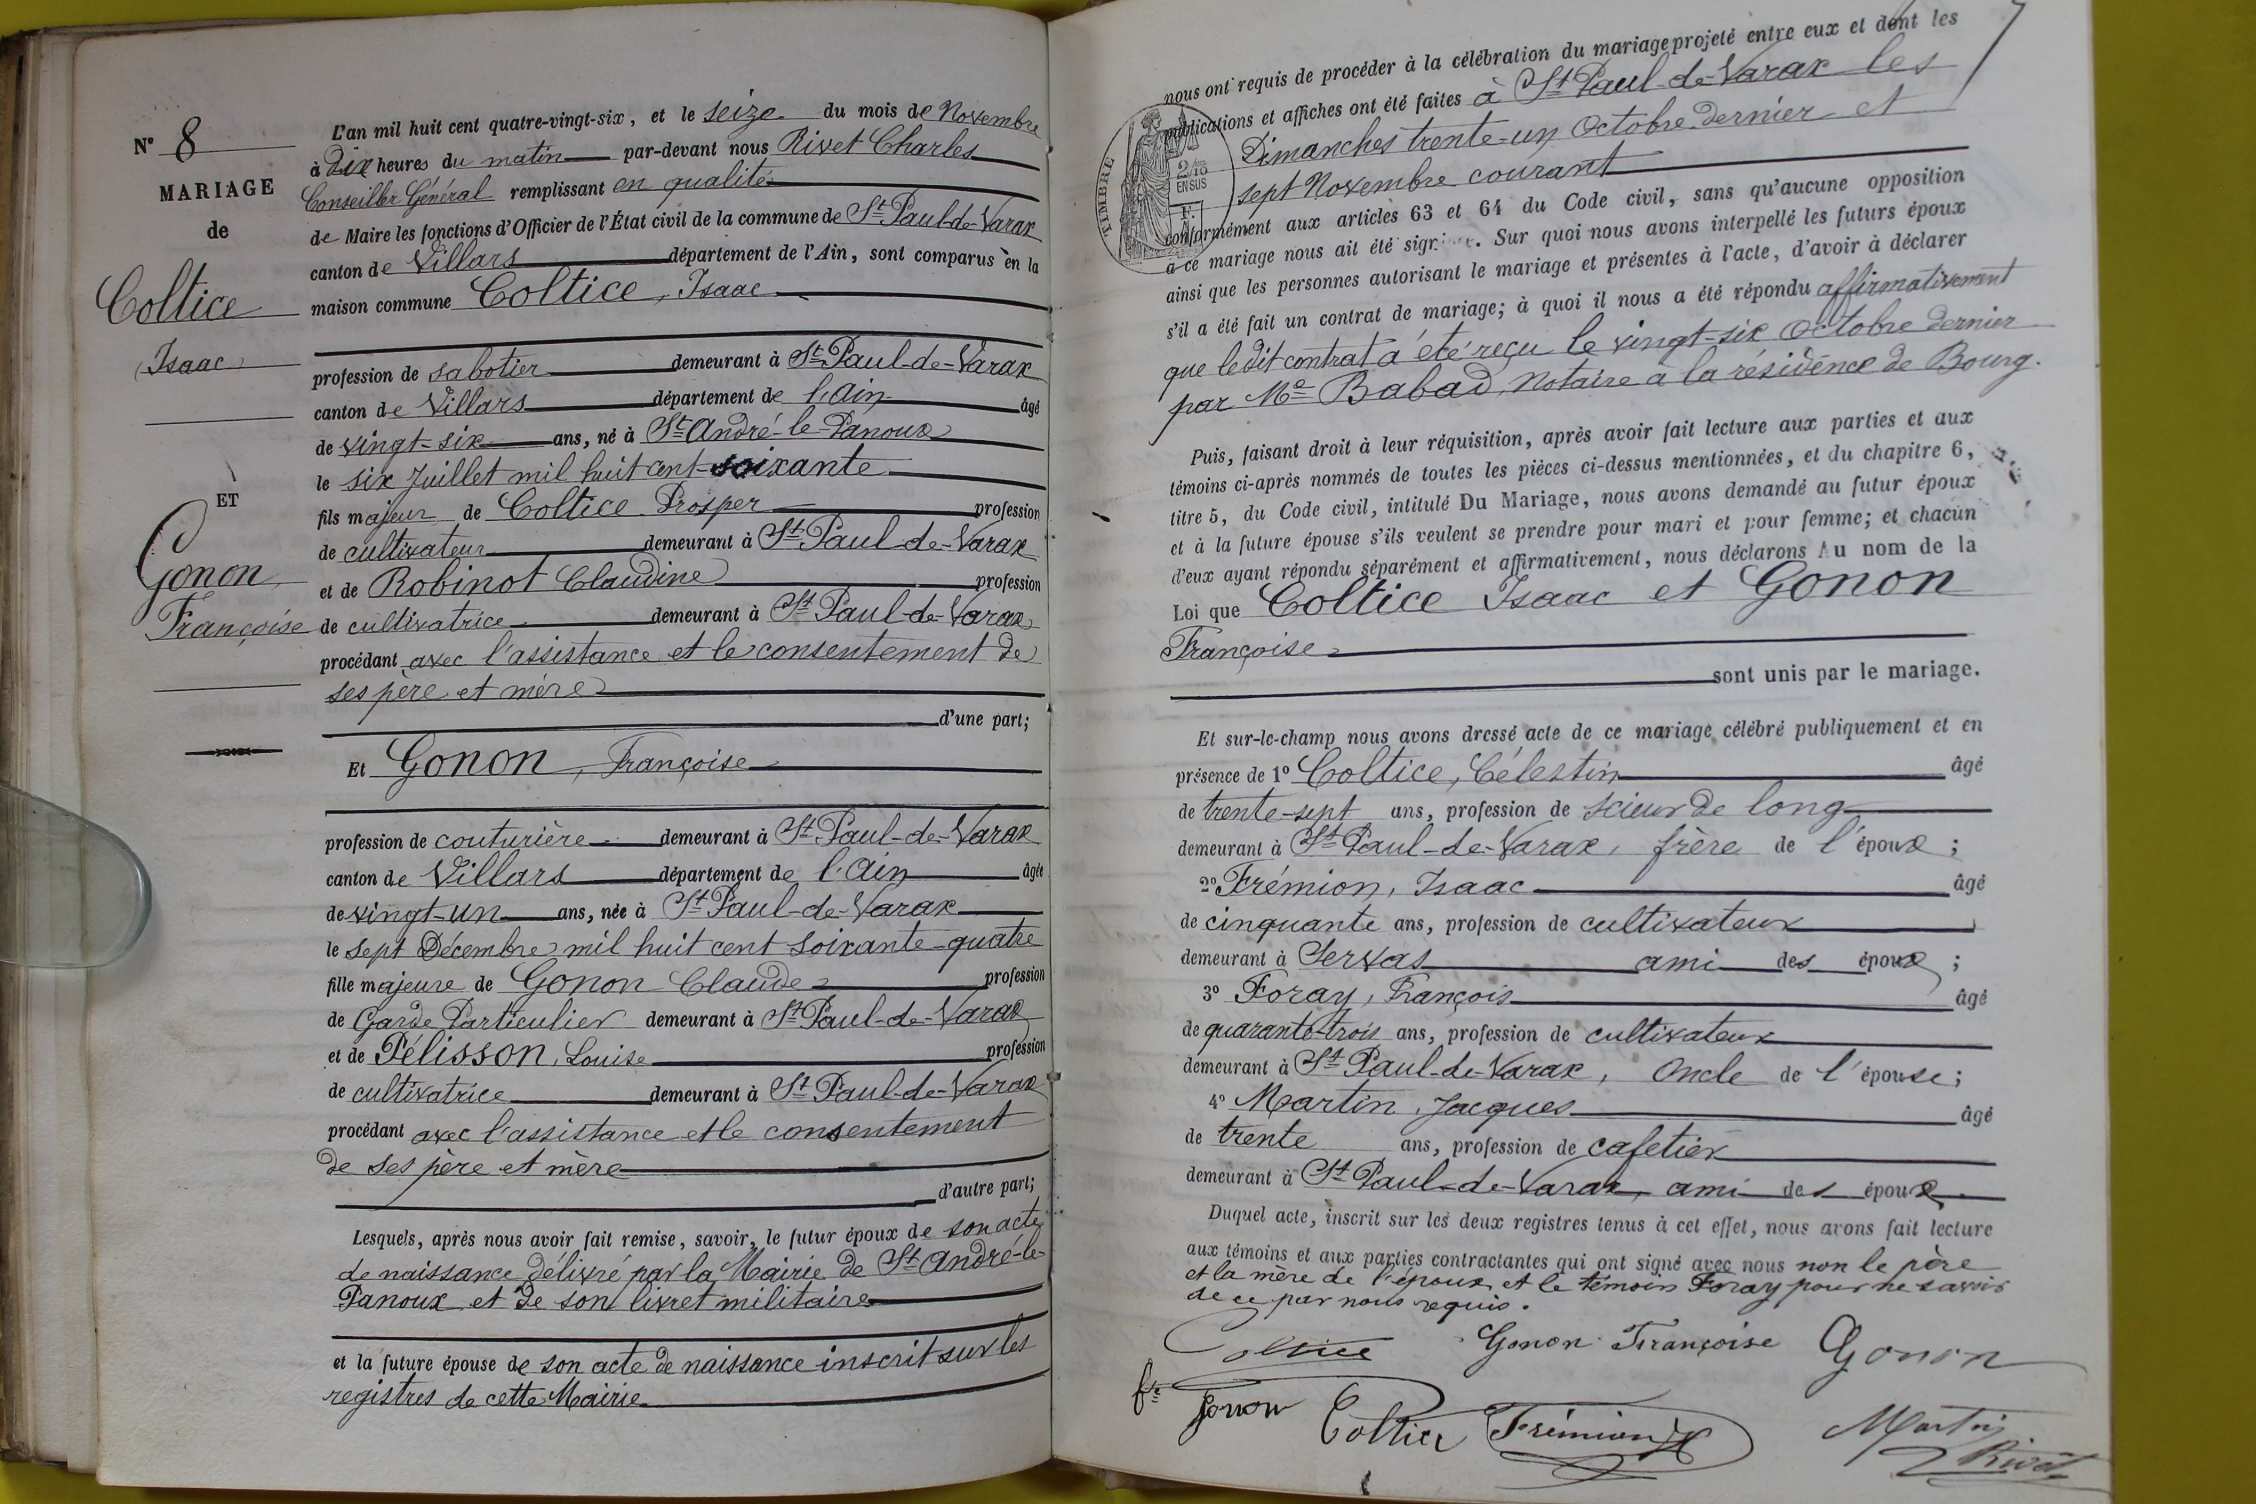 N° 8
MARIAGE
de
Coltice
Isaac
ET
Gonon
Françoise
L'an mil huit cent quatre-vingt-six, et le seize du mois de Novembre
à dix heures du matin par-devant nous Rivet Charles
Conseiller Général remplissant en qualité
de Maire les fonctions d'Officier de l'État civil de la commune de St Paul-de-Varax
canton de Villars département de l'Ain, sont comparus en la
maison commune Coltice, Isaac
profession de sabotier demeurant à St Paul-de-Varax
canton de Villars département de l'Ain âgé
de vingt-six ans, né à St André-le-Panoux
le six Juillet mil huit cent-soixante
fils majeur de Coltice Prosper profession
de cultivateur demeurant à St Paul-de-Varax
et de Robinot Claudine profession
de cultivatrice demeurant à St Paul-de-Varax
procédant avec l'assistance et le consentement de
ses père et mère
d'une part;
Et Gonon, Françoise
profession de couturière demeurant à St Paul-de-Varax
canton de Villars département de l'Ain âgée
de vingt-un ans, née à St Paul-de-Varax
le sept Décembre mil huit cent soixante-quatre
fille majeure de Gonon Claude profession
de Garde Particulier demeurant à St Paul-de-Varax
et de Pélisson, Louise profession
de cultivatrice demeurant à St Paul-de-Varax
procédant avec l'assistance et le consentement
de ses père et mère
d'autre part;
Lesquels, après nous avoir fait remise, savoir, le futur époux de son acte
de naissance délivré par la Mairie de St André-le-
Panoux et de son livret militaire
et la future épouse de son acte de naissance inscrit sur les
registres de cette Mairie
7
nous ont requis de procéder à la célébration du mariage projeté entre eux et dont les
publications et affiches ont été faites à St Paul-de-Varax les
Dimanches trente-un Octobre dernier et
sept Novembre courant
TIMBRE
2/10
EN SUS
F.
conformément aux articles 63 et 64 du Code civil, sans qu'aucune opposition
à ce mariage nous ait été signifiée. Sur quoi nous avons interpellé les futurs époux
ainsi que les personnes autorisant le mariage et présentes à l'acte, d'avoir à déclarer
s'il a été fait un contrat de mariage; à quoi il nous a été répondu affirmativement
que le dit contrat a été reçu le vingt-six Octobre dernier
par Me Babad, Notaire à la résidence de Bourg.
Puis, faisant droit à leur réquisition, après avoir fait lecture aux parties et aux
témoins ci-après nommés de toutes les pièces ci-dessus mentionnées, et du chapitre 6,
titre 5, du Code civil, intitulé Du Mariage, nous avons demandé au futur époux
et à la future épouse s'ils veulent se prendre pour mari et pour femme; et chacun
d'eux ayant répondu séparément et affirmativement, nous déclarons Au nom de la
Loi que Coltice Isaac et Gonon
Françoise
sont unis par le mariage.
Et sur-le-champ nous avons dressé acte de ce mariage célébré publiquement et en
présence de 1° Coltice, Célestin âgé
de trente-sept ans, profession de scieur de long
demeurant à St Paul-de-Varax, frère de l'époux;
2° Frémion, Isaac âgé
de cinquante ans, profession de cultivateur
demeurant à Servas ami des époux;
3° Foray, François âgé
de quarante-trois ans, profession de cultivateur
demeurant à St Paul-de-Varax, Oncle de l'épouse;
4° Martin, Jacques âgé
de trente ans, profession de cafetier
demeurant à St Paul-de-Varax, ami des époux
Duquel acte, inscrit sur les deux registres tenus à cet effet, nous avons fait lecture
aux témoins et aux parties contractantes qui ont signé avec nous non le père
et la mère de l'époux et le témoin Foray pour ne savoir
de ce par nous requis.
Coltice Gonon Françoise Gonon
fe Gonon Coltice Frémion Martin
Rivet